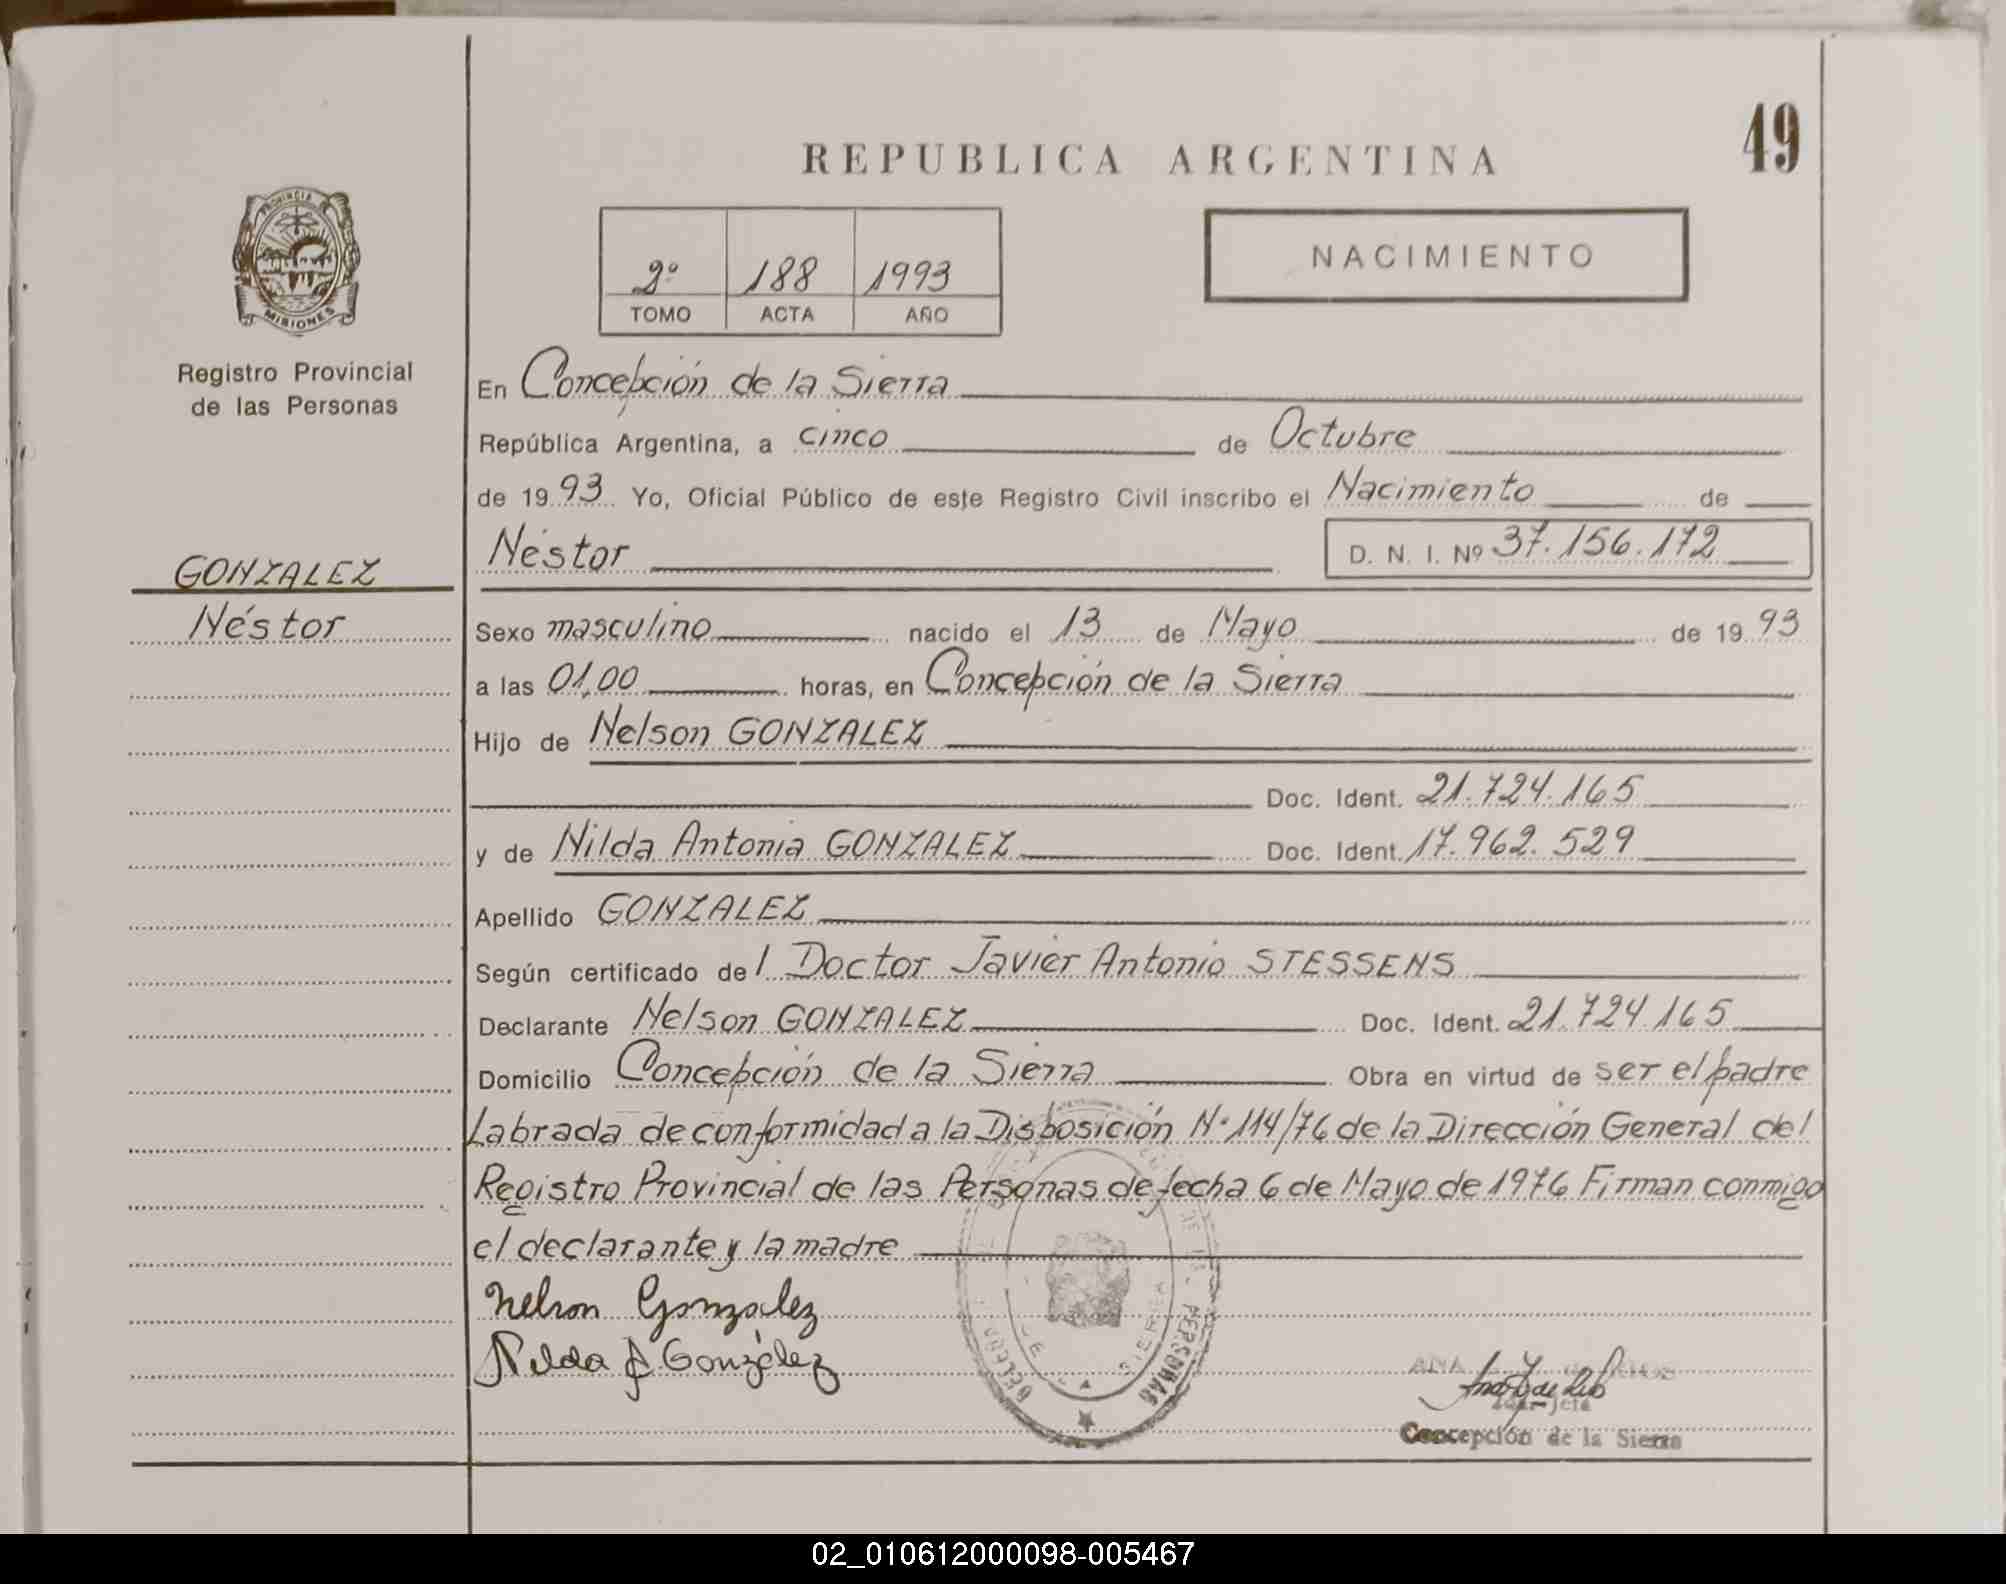 49
REPUBLICA ARGENTINA
PROVINCIA DE
MISIONES
2º 188 1993
TOMO ACTA AÑO
NACIMIENTO
Registro Provincial
de las Personas
En Concepción de la Sierra
República Argentina, a cinco de Octubre
de 1993 Yo, Oficial Público de este Registro Civil inscribo el Nacimiento de
GONZALEZ
Néstor
Néstor D. N. I. Nº 37.156.172
Sexo masculino nacido el 13 de Mayo de 1993
a las 01,00 horas, en Concepción de la Sierra
Hijo de Nelson GONZALEZ
Doc. Ident. 21.724.165
y de Nilda Antonia GONZALEZ Doc. Ident. 17.962.529
Apellido GONZALEZ
Según certificado del Doctor Javier Antonio STESSENS
Declarante Nelson GONZALEZ Doc. Ident. 21.724.165
Domicilio Concepción de la Sierra Obra en virtud de ser el padre
Labrada de conformidad a la Disposición Nº 114/76 de la Dirección General del
Registro Provincial de las Personas de fecha 6 de Mayo de 1976 Firman conmigo
el declarante y la madre
Nelson Gonzalez
Nilda A. González
PERSONAS
SIERRA
ANA
Concepción de la Sierra
02_010612000098-005467